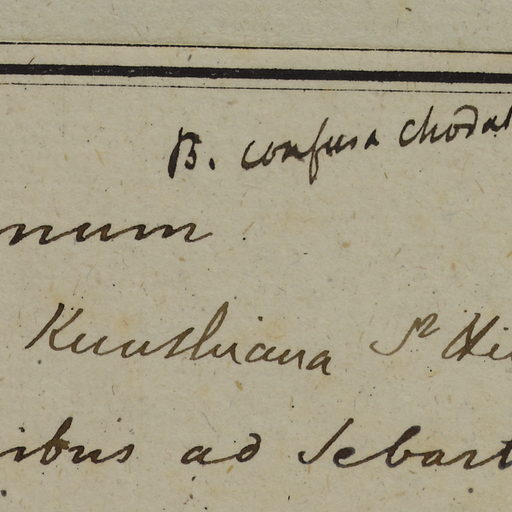 B. confusa Chodat
num
Kunthiana St Hi
ibus ad Sebast